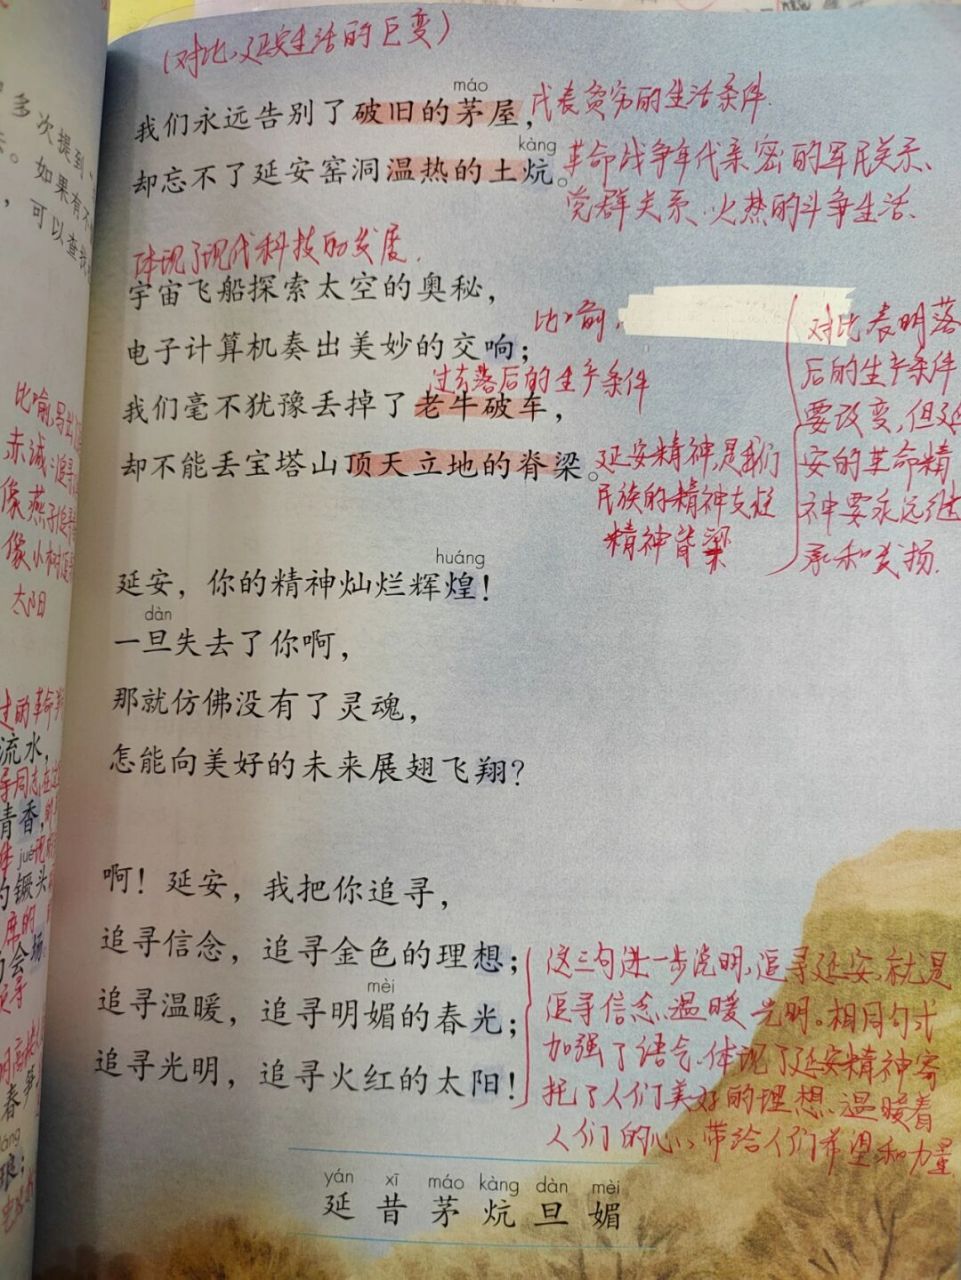 多次提到
如果有不
可以查找
（对比、延安生活的巨变）
máo
我们永远告别了破旧的茅屋，
代表贫穷的生活条件.
kàng
却忘不了延安窑洞温热的土炕。
革命战争年代亲密的军民关系、
党群关系、火热的斗争生活.
体现了现代科技的发展.
宇宙飞船探索太空的奥秘，
比喻,
电子计算机奏出美妙的交响；
过去落后的生产条件
我们毫不犹豫丢掉了老牛破车，
却不能丢宝塔山顶天立地的脊梁。
延安精神,是我们
民族的精神支柱
精神脊梁
对比表明落
后的生产条件
要改变,但延
安的革命精
神要永远继
承和发扬.
比喻,
赤诚
像燕子
像小树
太阳
huáng
延安，你的精神灿烂辉煌！
dàn
一旦失去了你啊，
那就仿佛没有了灵魂，
怎能向美好的未来展翅飞翔？
的革命
流水，
同志在
清香，
jué
的镢头
席的
会场
春笋
啊！延安，我把你追寻，
追寻信念，追寻金色的理想；
mèi
追寻温暖，追寻明媚的春光；
追寻光明，追寻火红的太阳！
这三句进一步说明,追寻延安,就是
追寻信念、温暖、光明。相同句式
加强了语气.体现了延安精神寄
托了人们美好的理想、温暖着
人们的心、带给人们希望和力量
yán xī máo kàng dàn mèi
延 昔 茅 炕 旦 媚